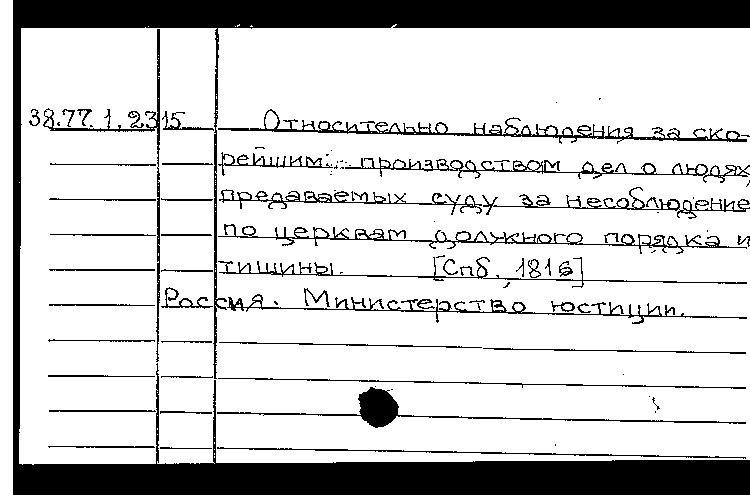 38.77.1.2315 Относительно наблюдения за ско-
рейшим производством дел о людях,
предаваемых суду за несоблюдение
по церквам должного порядка и
тишины. [Спб., 1816]
Россия. Министерство юстиции.